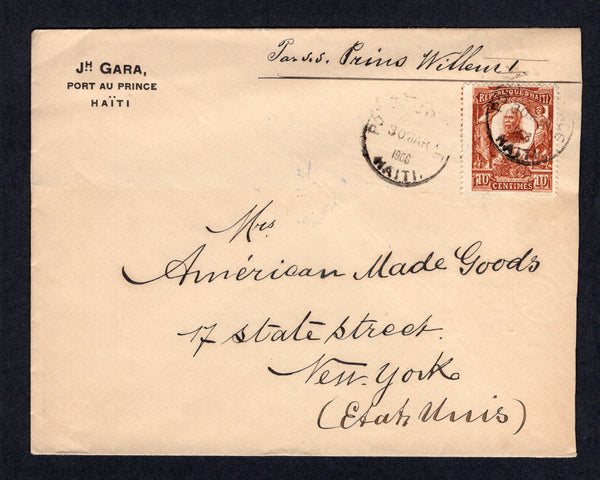 Par s.s. Prins Willem I
JH GARA,
PORT AU PRINCE
HAÏTI
REPUBLIQUE D'HAITI
10 CENTIMES 10
30 MAR
1906
HAITI.
HAITI
Mrs
Américan Made Goods
17 state street.
New-York
(Etats Unis)